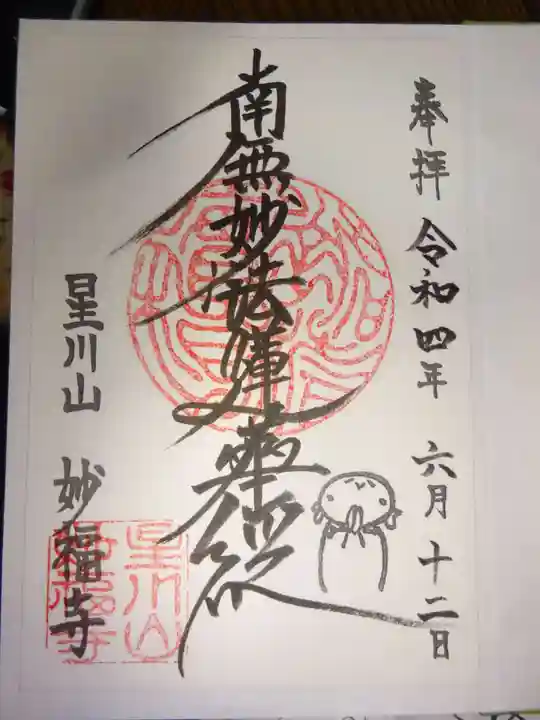 奉拝 令和四年 六月十二日
南無妙法蓮華経
星川山 妙福寺
星川山